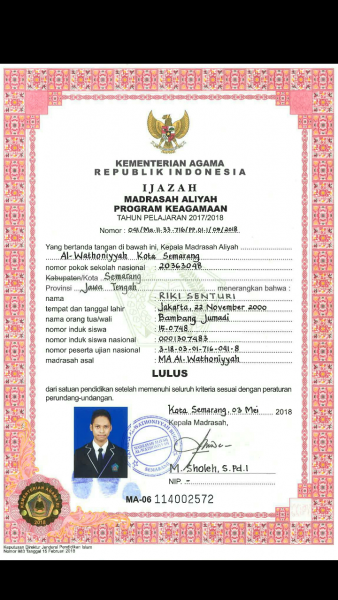 KEMENTERIAN AGAMA
REPUBLIK INDONESIA
IJAZAH
MADRASAH ALIYAH
PROGRAM KEAGAMAAN
TAHUN PELAJARAN 2017/2018
Nomor : 041/Ma.11.33.716/PP.01.1/05/2018
Yang bertanda tangan di bawah ini, Kepala Madrasah Aliyah
Al-Wathoniyyah Kota Semarang
nomor pokok sekolah nasional 20363098
Kabupaten/Kota Semarang
Provinsi Jawa Tengah menerangkan bahwa :
nama RIKI SENTURI
tempat dan tanggal lahir Jakarta, 22 November 2000
nama orang tua/wali Bambang Jumadi
nomor induk siswa 15.0748
nomor induk siswa nasional 0001307483
nomor peserta ujian nasional 3-18-03-01-716-041-8
madrasah asal MA Al-Wathoniyyah
LULUS
dari satuan pendidikan setelah memenuhi seluruh kriteria sesuai dengan peraturan
perundang-undangan.
Kota Semarang, 03 Mei 2018
Kepala Madrasah,
M. Sholeh, S.Pd.I
NIP. -
MA-06 114002572
KEMENTERIAN AGAMA
2018
Keputusan Direktur Jenderal Pendidikan Islam
Nomor 883 Tanggal 15 Februari 2018